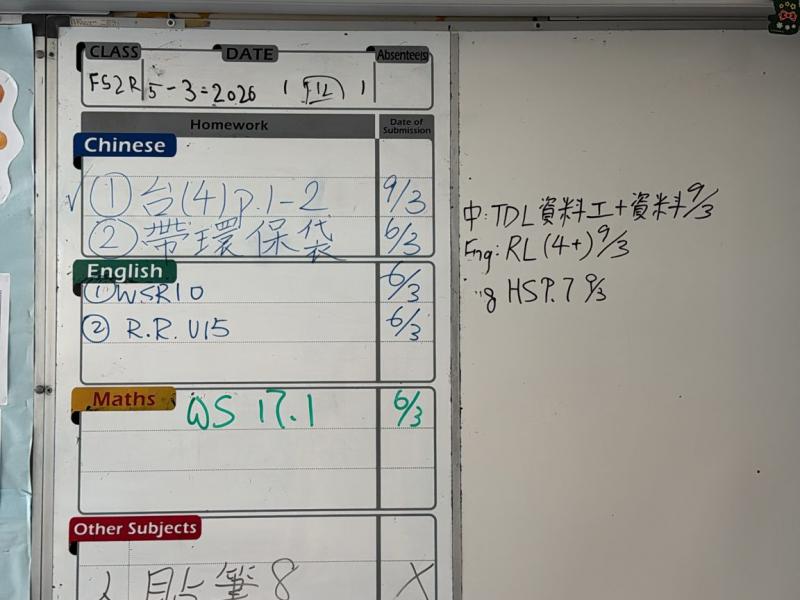 CLASS DATE Absentee(s)
5-3-2026
Homework Date of Submission
Chinese
① 台(4) p.1-2 9/3
② 帶環保袋 6/3
English
① WSR10 6/3
② R.R. U15 6/3
Maths
WS 17.1 6/3
Other Subjects
貼筆8 X
中: TDL 資料工+資料 9/3
Eng: RL (4+) 9/3
HSP.7 9/3